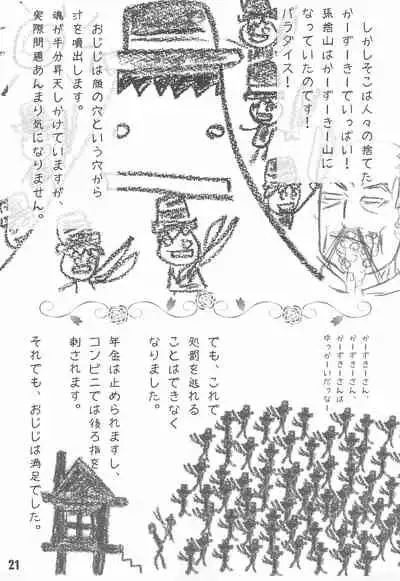 しかしそこは人々の捨てた
かーずーきーでいっぱい！
孫捨山はかーずーきー山に
なっていたのです！
パラダイス！
おじじは顔の穴という穴から
汁を噴出します。
魂が半分昇天しかけていますが、
実際問題あんまり気になりません。
かーずきーさん、
かーずきーさん、
かーずきーさんは
ゆっかーいだっなー
でも、これで
処罰を逃れる
ことはできなく
なりました。
年金は止められますし、
コンビニでは後ろ指を
刺されます。
それでも、おじじは満足でした。
21